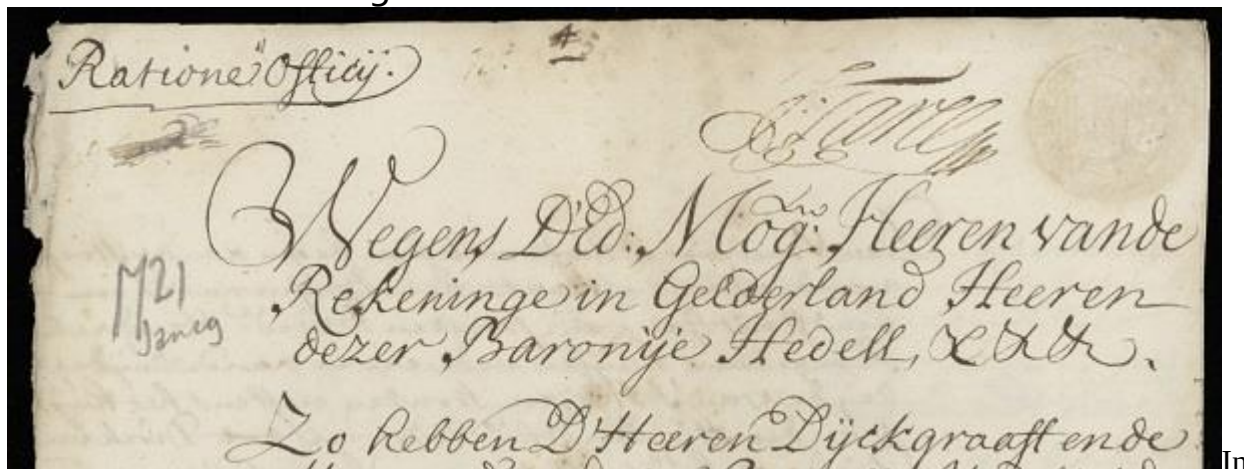 Ratione Officij.
4
Wegens, D'Ed: Mog: Heeren vande
Rekeninge in Gelderland Heeren
dezer Baronije Hedell, &&&.
Zo hebben D'Heeren Dijckgraaff ende
In